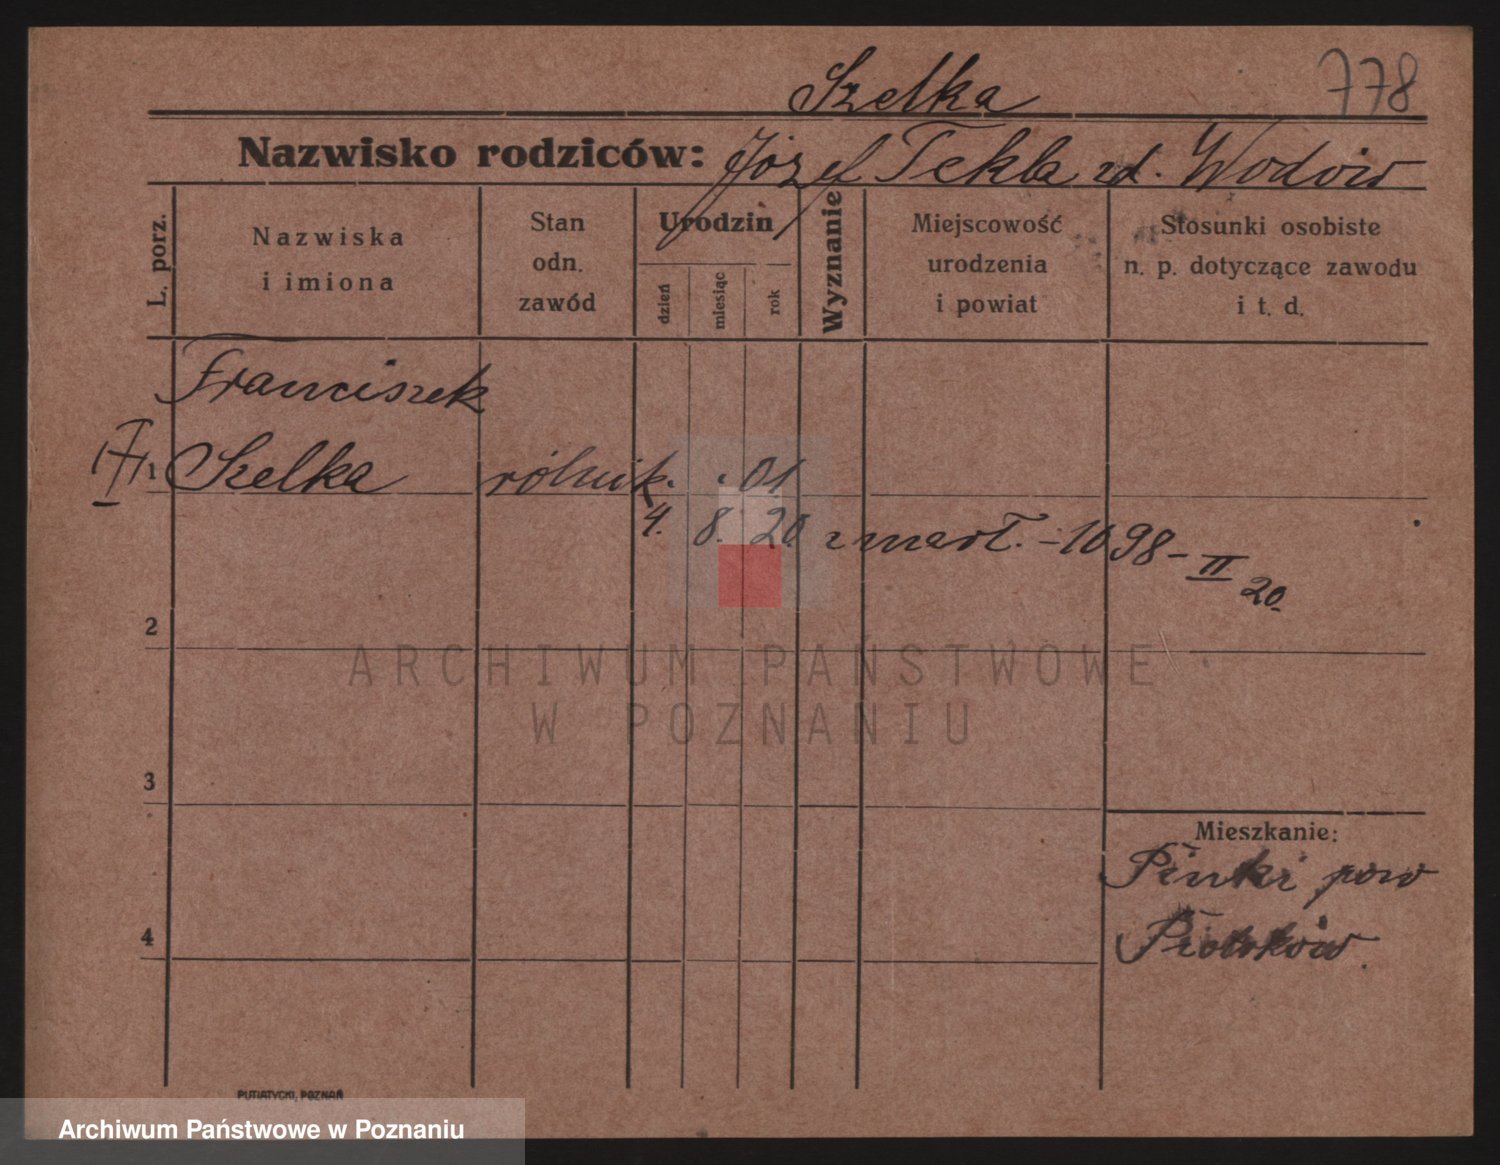 Szelka 778
Nazwisko rodziców: Józef Tekla zd. Wodow
L. porz.
Nazwiska
i imiona
Stan
odn.
zawód
Urodzin
dzień
miesiąc
rok
Wyznanie
Miejscowość
urodzenia
i powiat
Stosunki osobiste
n. p. dotyczące zawodu
i t. d.
Franciszek
1 Szelka rólnik. 01
4. 8. 20 zmarł. - 1098 - II
20.
2
3
4
Mieszkanie:
pow
Piotrków.
PUTIATYCKI, POZNAŃ
ARCHIWUM PAŃSTWOWE
W POZNANIU
Archiwum Państwowe w Poznaniu